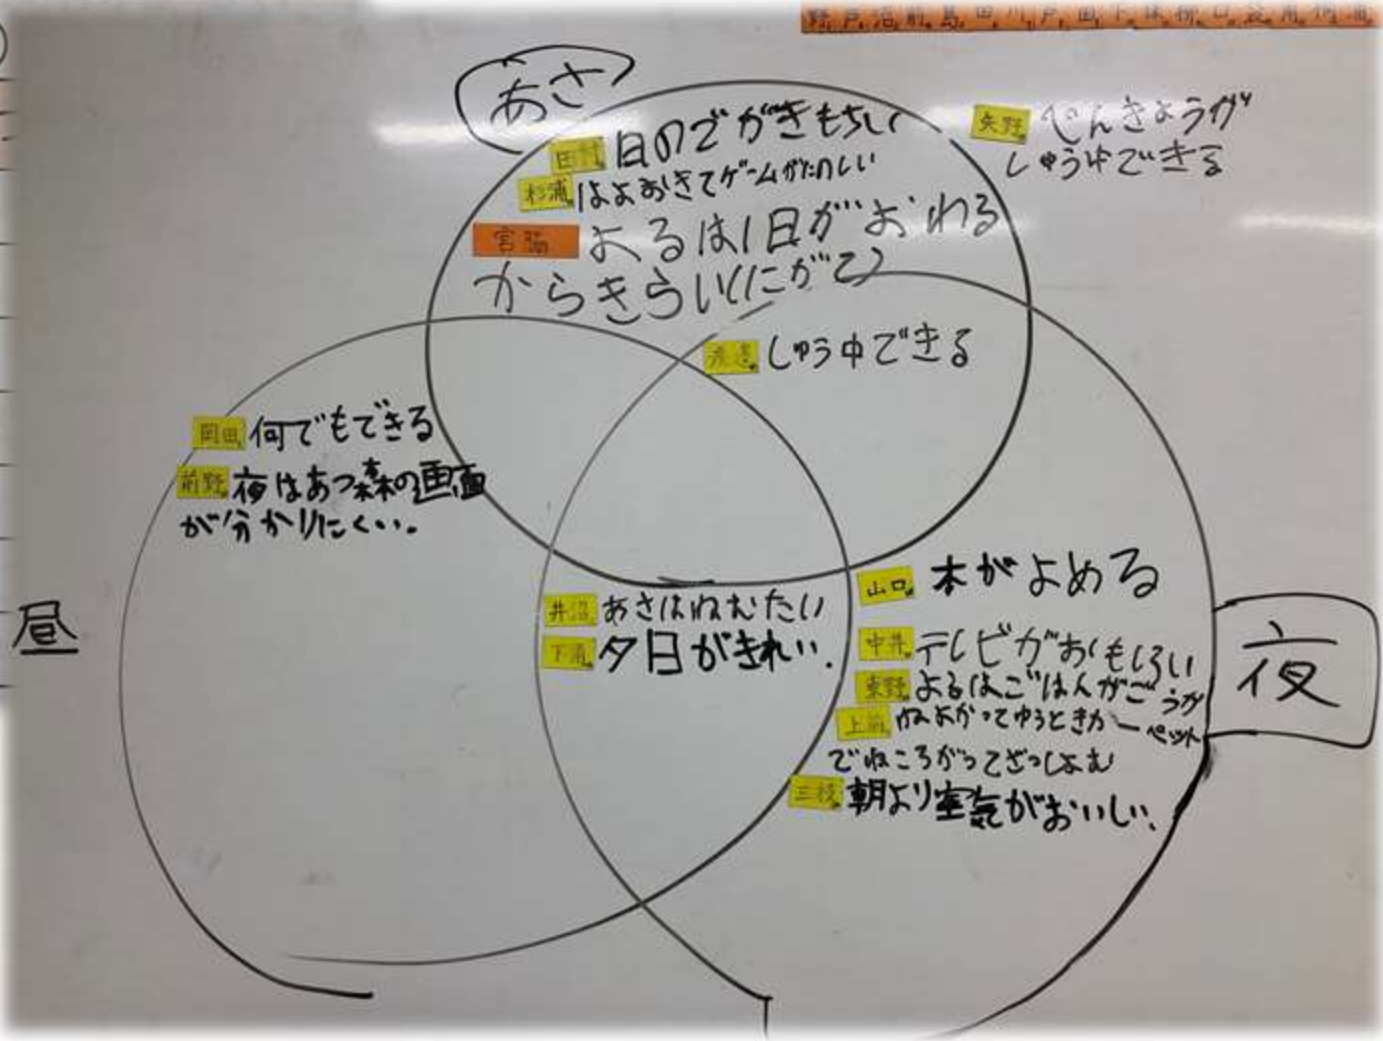 野戸沼前島田川戸
あさ
日のでがきもちい
杉浦 はよおきてゲームがたのしい
宮脇 よるは1日がおわる
からきらい(にがて)
矢野 べんきょうが
しゅう中できる
渡邉 しゅう中できる
岡田 何でもできる
前野 夜はあつ森の画面
が分かりにくい。
昼
井沼 あさはねむたい
下浦 夕日がきれい.
山口 本がよめる
中井 テレビがおもしろい
東野 よるはごはんがごうか
ねよがってゆうときカーペット
でねころがってざっしよむ
三枝 朝より空気がおいしい.
夜